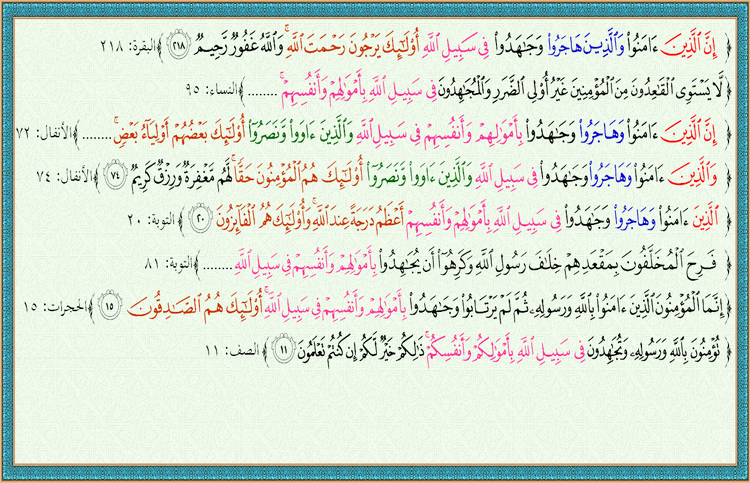 ﴿ إِنَّ ٱلَّذِينَ ءَامَنُوا۟ وَٱلَّذِينَ هَاجَرُوا۟ وَجَـٰهَدُوا۟ فِى سَبِيلِ ٱللَّهِ أُو۟لَـٰٓئِكَ يَرْجُونَ رَحْمَتَ ٱللَّهِ ۚ وَٱللَّهُ غَفُورٌ رَّحِيمٌ ٢١٨ ﴾ البقرة: ٢١٨
﴿ لَّا يَسْتَوِى ٱلْقَـٰعِدُونَ مِنَ ٱلْمُؤْمِنِينَ غَيْرُ أُو۟لِى ٱلضَّرَرِ وَٱلْمُجَـٰهِدُونَ فِى سَبِيلِ ٱللَّهِ بِأَمْوَٰلِهِمْ وَأَنفُسِهِمْ ۚ ........ ﴾ النساء: ٩٥
﴿ إِنَّ ٱلَّذِينَ ءَامَنُوا۟ وَهَاجَرُوا۟ وَجَـٰهَدُوا۟ بِأَمْوَٰلِهِمْ وَأَنفُسِهِمْ فِى سَبِيلِ ٱللَّهِ وَٱلَّذِينَ ءَاوَوا۟ وَّنَصَرُوٓا۟ أُو۟لَـٰٓئِكَ بَعْضُهُمْ أَوْلِيَآءُ بَعْضٍ ۚ ........ ﴾ الأنفال: ٧٢
﴿ وَٱلَّذِينَ ءَامَنُوا۟ وَهَاجَرُوا۟ وَجَـٰهَدُوا۟ فِى سَبِيلِ ٱللَّهِ وَٱلَّذِينَ ءَاوَوا۟ وَّنَصَرُوٓا۟ أُو۟لَـٰٓئِكَ هُمُ ٱلْمُؤْمِنُونَ حَقًّا ۚ لَّهُم مَّغْفِرَةٌ وَرِزْقٌ كَرِيمٌ ٧٤ ﴾ الأنفال: ٧٤
﴿ ٱلَّذِينَ ءَامَنُوا۟ وَهَاجَرُوا۟ وَجَـٰهَدُوا۟ فِى سَبِيلِ ٱللَّهِ بِأَمْوَٰلِهِمْ وَأَنفُسِهِمْ أَعْظَمُ دَرَجَةً عِندَ ٱللَّهِ ۚ وَأُو۟لَـٰٓئِكَ هُمُ ٱلْفَآئِزُونَ ٢٠ ﴾ التوبة: ٢٠
﴿ فَرِحَ ٱلْمُخَلَّفُونَ بِمَقْعَدِهِمْ خِلَـٰفَ رَسُولِ ٱللَّهِ وَكَرِهُوٓا۟ أَن يُجَـٰهِدُوا۟ بِأَمْوَٰلِهِمْ وَأَنفُسِهِمْ فِى سَبِيلِ ٱللَّهِ ........ ﴾ التوبة: ٨١
﴿ إِنَّمَا ٱلْمُؤْمِنُونَ ٱلَّذِينَ ءَامَنُوا۟ بِٱللَّهِ وَرَسُولِهِۦ ثُمَّ لَمْ يَرْتَابُوا۟ وَجَـٰهَدُوا۟ بِأَمْوَٰلِهِمْ وَأَنفُسِهِمْ فِى سَبِيلِ ٱللَّهِ ۚ أُو۟لَـٰٓئِكَ هُمُ ٱلصَّـٰدِقُونَ ١٥ ﴾ الحجرات: ١٥
﴿ تُؤْمِنُونَ بِٱللَّهِ وَرَسُولِهِۦ وَتُجَـٰهِدُونَ فِى سَبِيلِ ٱللَّهِ بِأَمْوَٰلِكُمْ وَأَنفُسِكُمْ ۚ ذَٰلِكُمْ خَيْرٌ لَّكُمْ إِن كُنتُمْ تَعْلَمُونَ ١١ ﴾ الصف: ١١